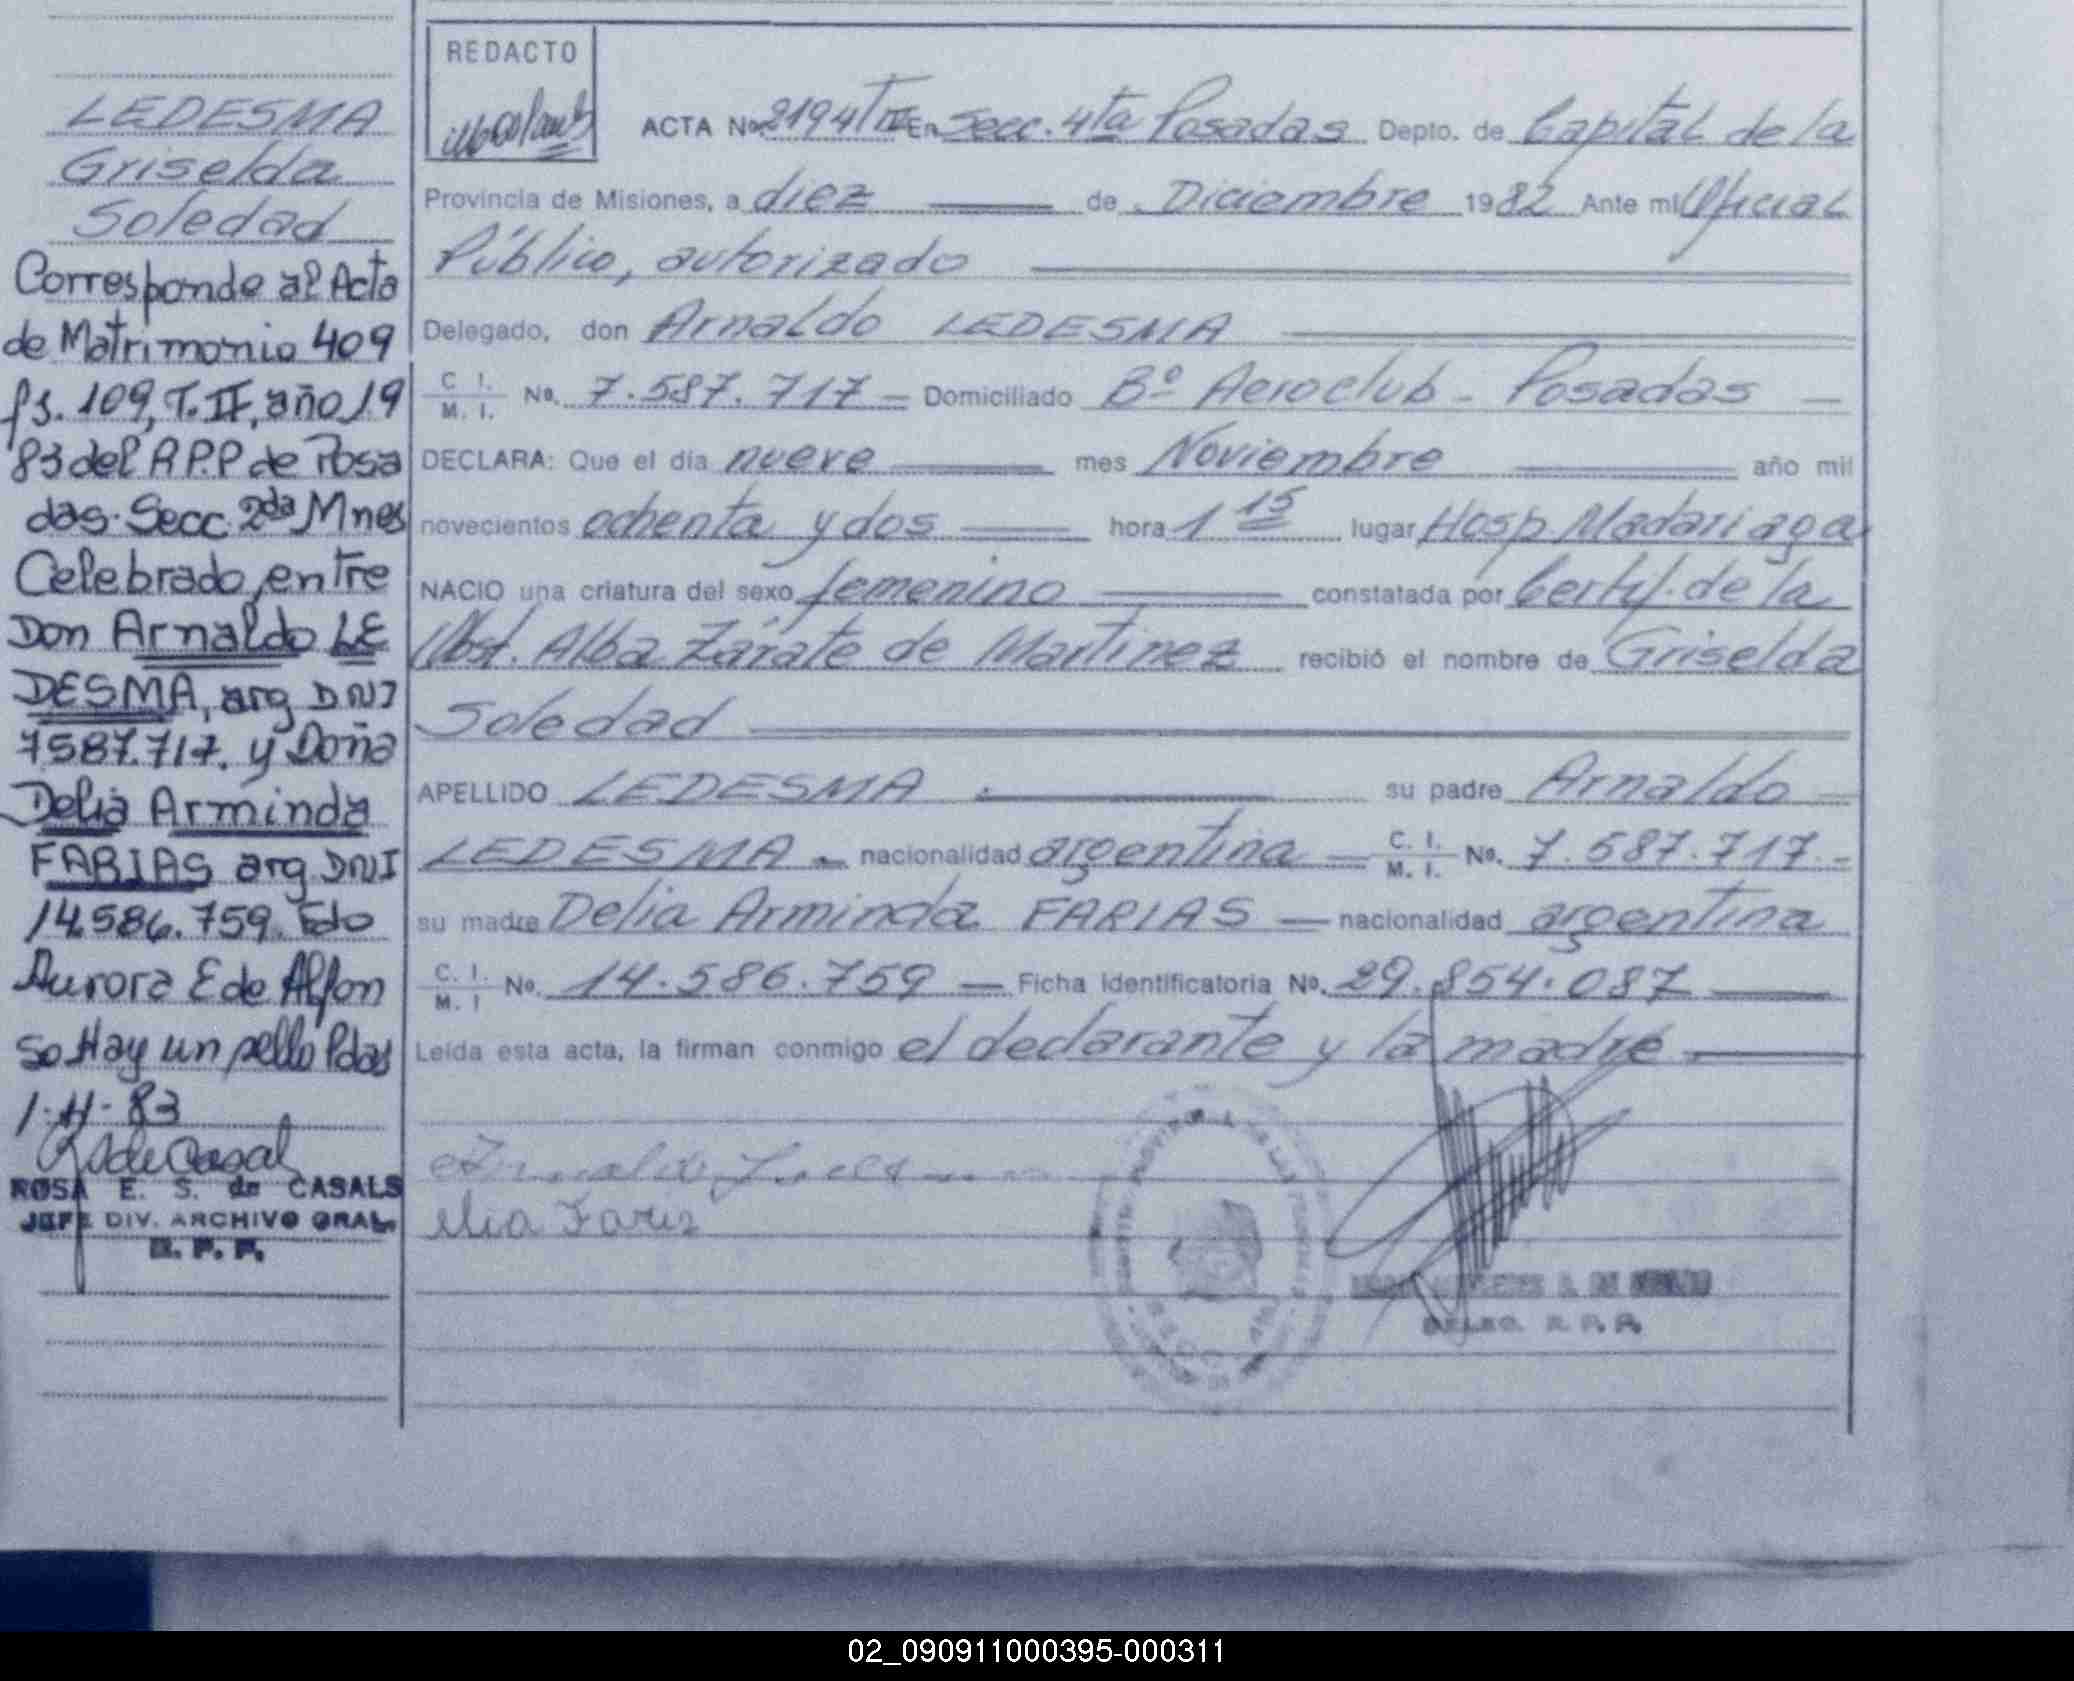 LEDESMA
Griselda
Soledad
Corresponde al Acta
de Matrimonio 409
fs. 109, T. II, año 19
83 del R.P.P de Posa
das. Secc. 2da Mnes
Celebrado, entre
Don Arnaldo LE
DESMA, arg DNI
7587.717. y Doña
Delia Arminda
FARIAS arg DNI
14.586.759. Fdo
Aurora E de Alfon
so Hay un sello Pdas
1-11-83
ROSA E. S. de CASALS
JEFE DIV. ARCHIVO GRAL.
R. P. P.
REDACTO
ACTA No. 2194 T III En Secc. 4ta Posadas Depto. de Capital de la
Provincia de Misiones, a diez de Diciembre 1982 Ante mi Oficial
Público, autorizado
Delegado, don Arnaldo LEDESMA
C. I. M. I. No. 7.587.717 - Domiciliado Bº Aeroclub - Posadas -
DECLARA: Que el día nueve mes Noviembre año mil
novecientos ochenta y dos hora 1 15 lugar Hosp. Madariaga
NACIO una criatura del sexo femenino constatada por Certif. de la
Obst. Alba Zárate de Martinez recibió el nombre de Griselda
Soledad
APELLIDO LEDESMA su padre Arnaldo
LEDESMA - nacionalidad argentina - C. I. M. I. No. 7.587.717.-
su madre Delia Arminda FARIAS - nacionalidad argentina
C. I. M. I No. 14.586.759 - Ficha Identificatoria No. 29.854.087
Leída esta acta, la firman conmigo el declarante y la madre
DELEG. R. P. P.
02_090911000395-000311